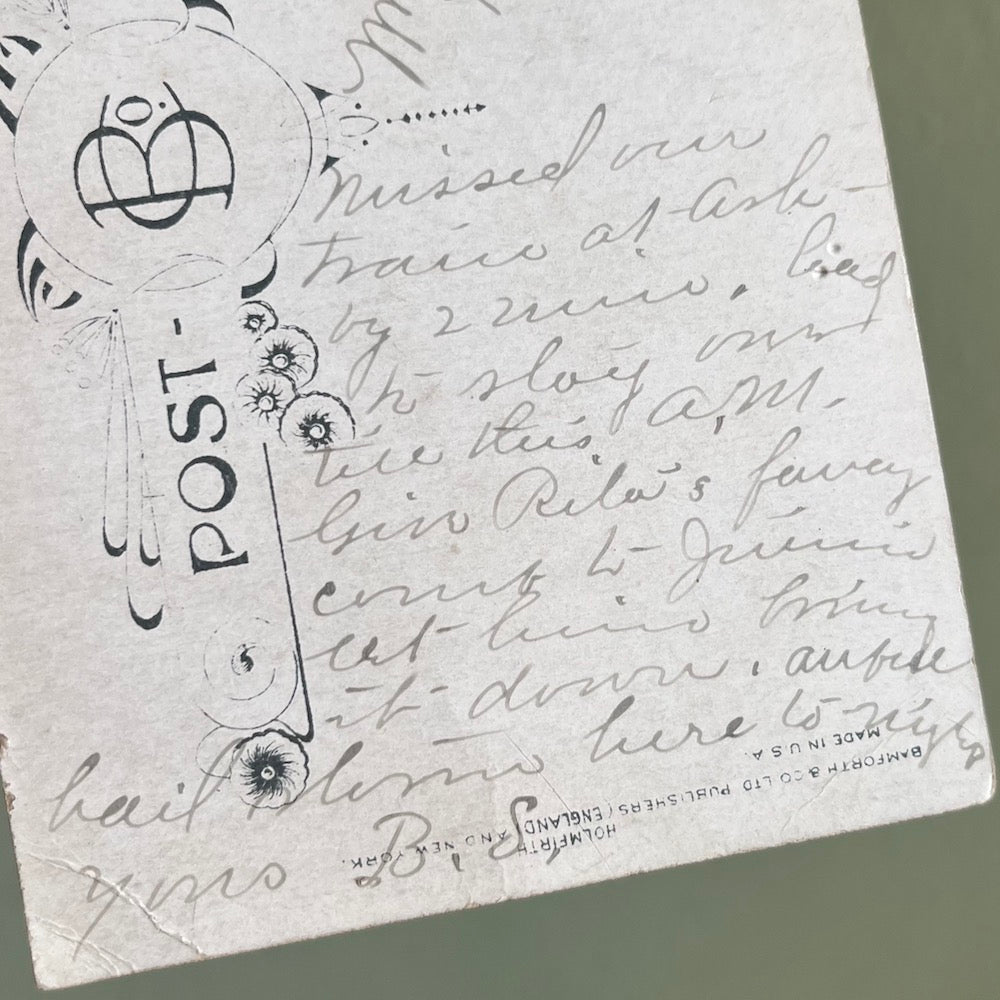 B. Co.
POST-
M
missed our
train at Ash-
by 2 min. had
to stay over
till this A.M.
Give Rita's fancy
comb to Junior
let him bring
it down.
hail storm here to night
yours B. S.
BAMFORTH & CO LTD PUBLISHERS (ENGLAND) AND NEW YORK.
HOLMFIRTH
MADE IN U.S.A.